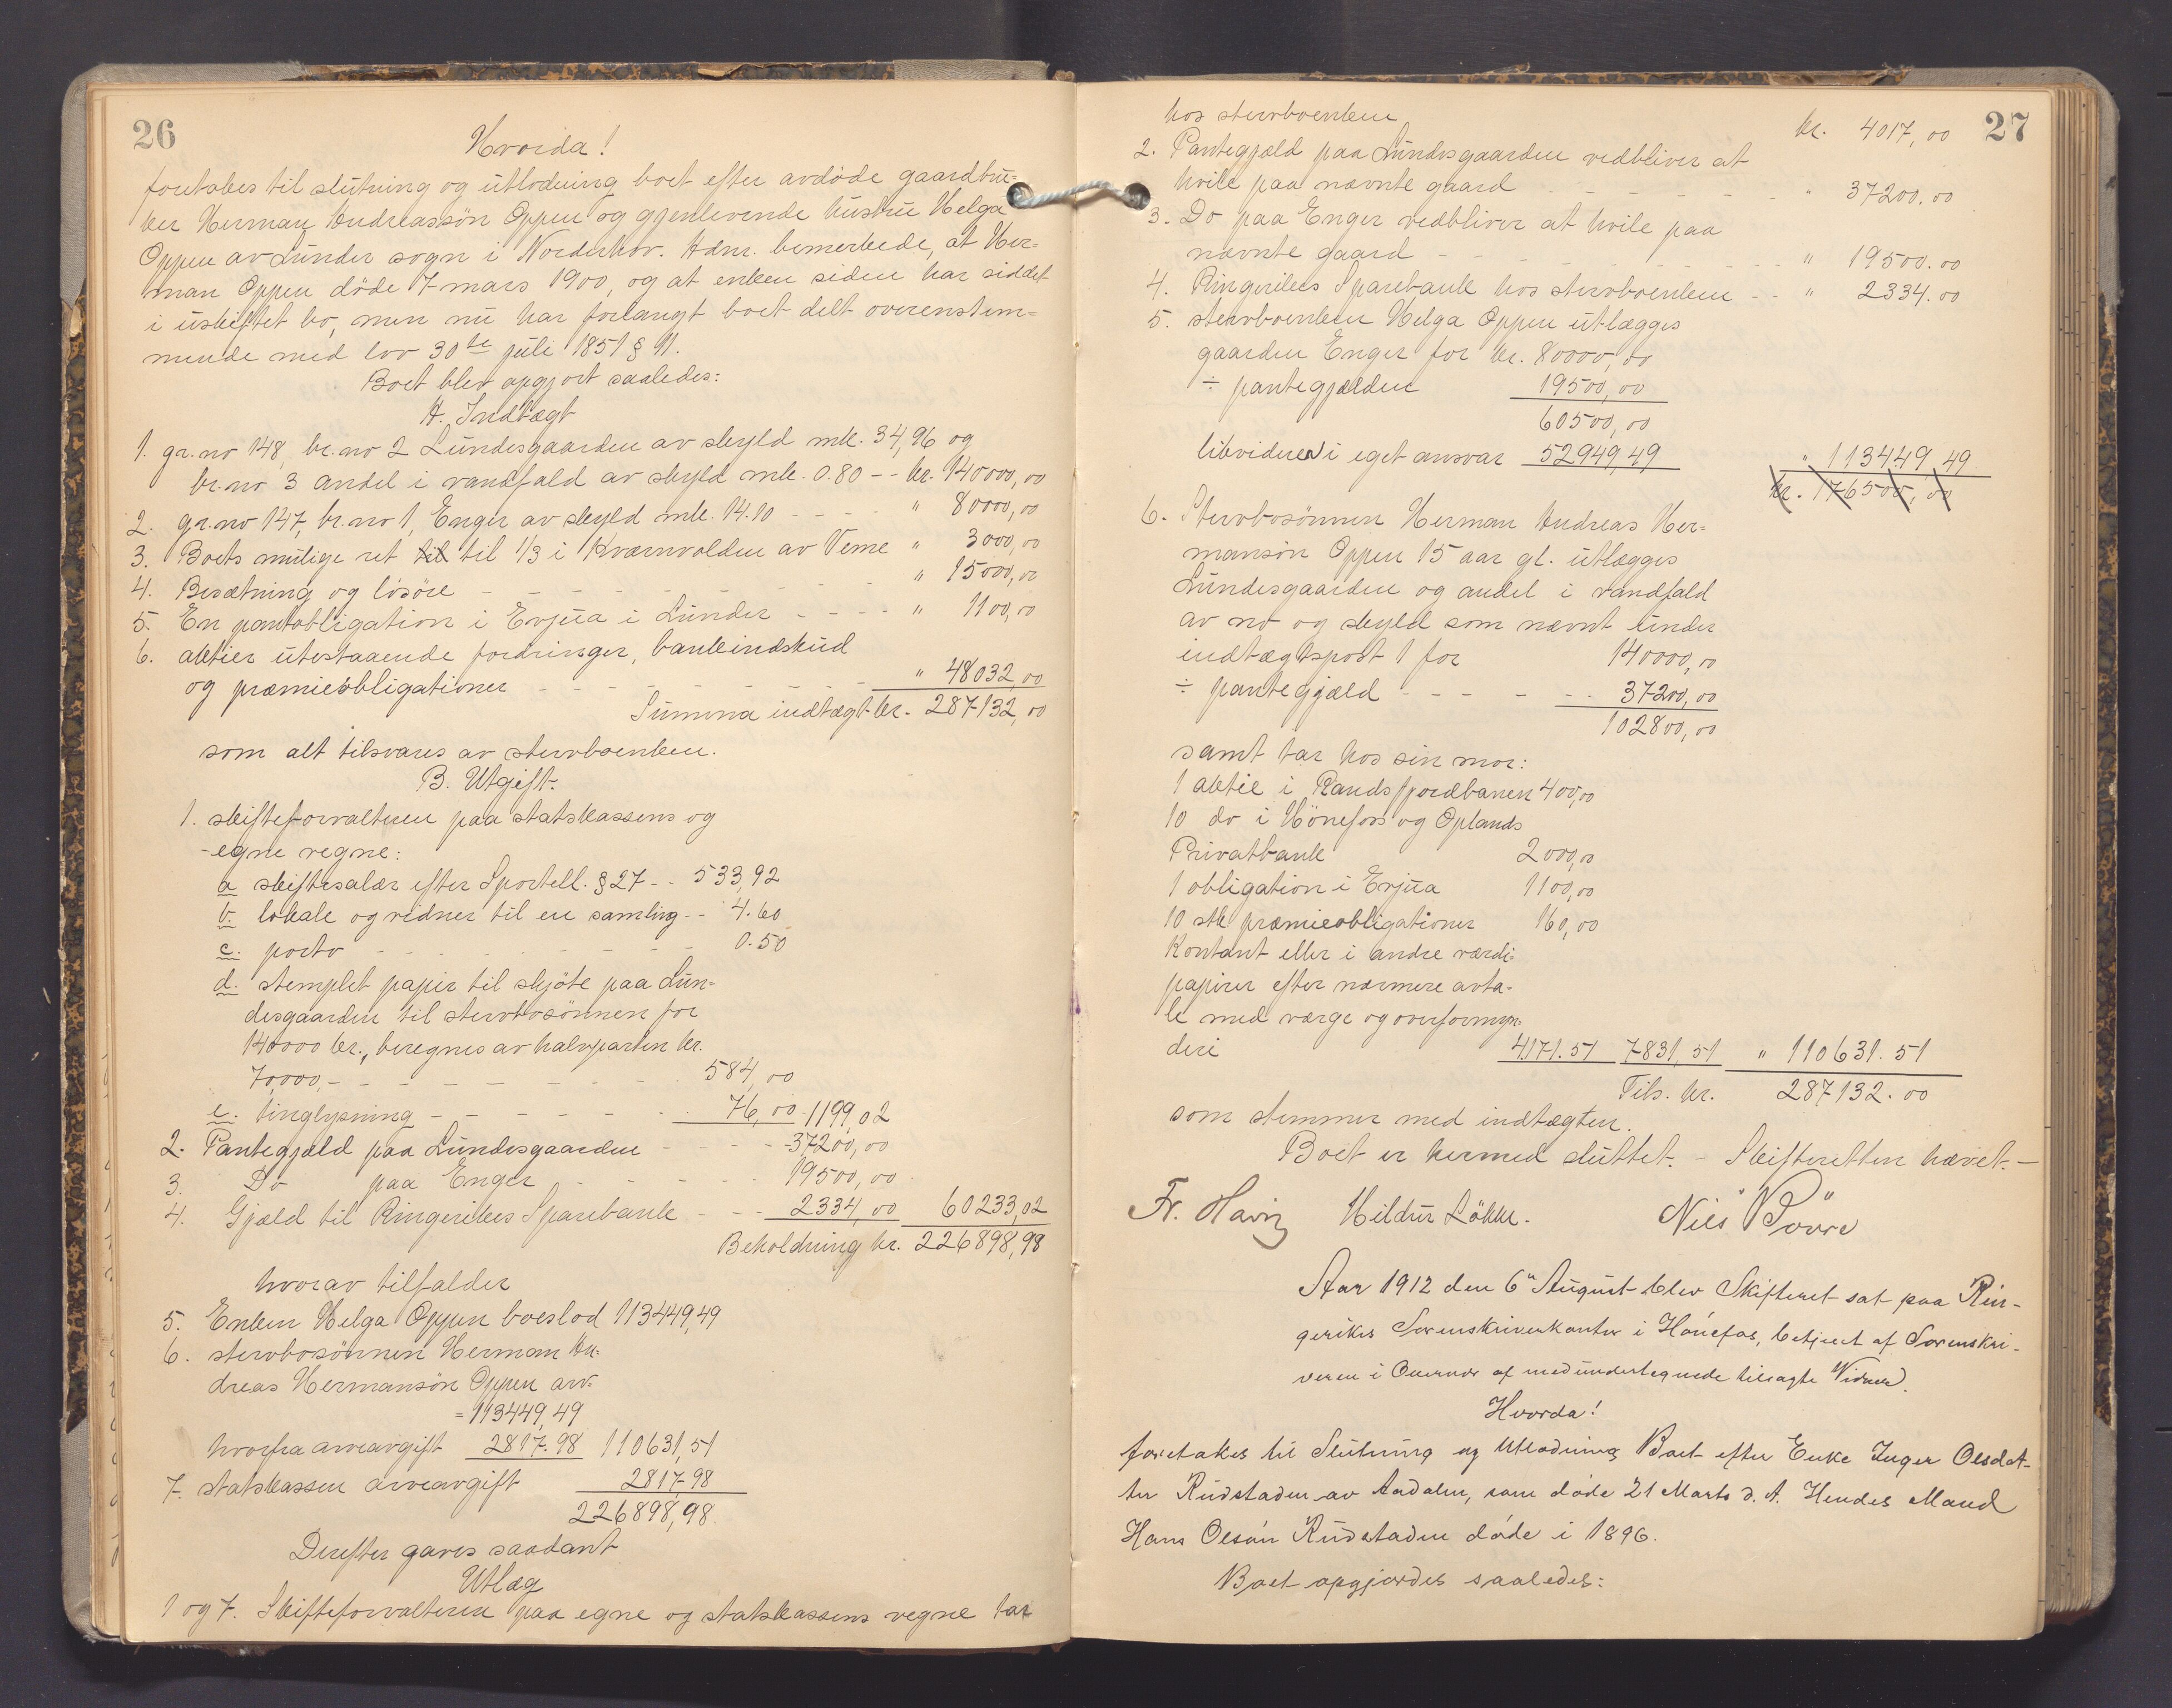 26
Hvorda!
foretokes til slutning og utlodning boet efter avdöde gaardbru=
ker Herman Andreassön Oppen og gjenlevende hustru Helga
Oppen av Lunder sogn i Norderhov. Adm. bemerkede, at Her=
man Oppen döde 7 mars 1900, og at enken siden har siddet
i uskiftet bo, men nu har forlangt boet delt overenstem=
mende med lov 30te juli 1851 § 11.
Boet blev opgjort saaledes:
A. Indtægt
1. gr.no 148, br.no 2 Lundesgaarden av skyld mk. 34,96 og
br.no 3 andel i vandfald av skyld mk. 0.80 -- kr. 140000,00
2. gr.no 147, br.no 1, Enger av skyld mk. 14.10 - - - " 80000,00
3. Boets mulige ret til til 1/3 i Kværnvolden av Veme " 3000,00
4. Besætning og lösöre - - - - - - " 15000,00
5. En pantobligation i Evjua i Lunder - - - - " 1100,00
6. aktier utestaaende fordringer, bankindskud
og præmieobligationer - - - - - - " 48032,00
Summa indtægt kr. 287132,00
som alt tilsvares av stervboenken.
B. Utgift.
1. skifteforvalteren paa statskassens og
-egne vegne:
a skiftesalær efter Sportell. § 27 - - 533,92
b. lokale og vidner til en samling - - 4.60
c. porto - - - - - - 0.50
d. stemplet papir til skjöte paa Lun=
desgaarden til stervbosönnen for
140000 kr., beregnes av halvparten kr.
70,000,- - - - - - - - 584,00
e. tinglysning - - - - - - 76,00 1199,02
2. Pantegjæld paa Lundesgaarden - - - - 37200,00
3. Do paa Enger - - - - - 19500,00
4. Gjæld til Ringerikes Sparebank - - - 2334,00 60233,02
Beholdning kr. 226898,98
hvorav tilfalder
5. Enken Helga Oppen boeslod 113449,49
6. stervbosönnen Herman An=
dreas Hermansön Oppen arv=
= 113449,49
hvorfra arveavgift 2817.98 110631,51
7. statskassen arveavgift 2817.98
226898,98.
Derefter gaves saadant
Utlæg
1 og 7. Skifteforvalteren paa egne og statskassens vegne tar
27
hos stervboenken kr. 4017,00
2. Pantegjæld paa Lundesgaarden vedbliver at
hvile paa nævnte gaard - - - - - - " 37200.00
3. Do paa Enger vedbliver at hvile paa
nævnte gaard - - - - - - - - " 19500.00
4. Ringerikes Sparebank hos stervboenken - - " 2334.00
5. stervboenken Helga Oppen utlægges
gaarden Enger for kr. 80000,00
÷ pantegjælden 19500,00
60500,00
likviderer i eget ansvar 52949,49 " 113449,49
kr. 176500,00
6. Stervbosönnen Herman Andreas Her=
mansön Oppen 15 aar gl. utlægges
Lundesgaarden og andel i vandfald
av no og skyld som nævnt under
indtægtspost 1 for 140000,00
÷ pantegjæld - - - - - - 37200,00
102800,00
samt tar hos sin mor:
1 aktie i Randsfjordbanen 400,00
10 do i Hönefoss og Oplands
Privatbank 2000,00
1 obligation i Evjua 1100,00
10 stk præmieobligationer 160,00
Kontant eller i andre værdi=
papirer efter nærmere avta-
le med værge og overformyn=
deri 4171.51 7831,51 " 110631.51
Tils. kr. 287132.00
som stemmer med indtægten.
Boet er hermed sluttet. - Skifteretten hævet. -
Hildur Lökke. Nils
Aar 1912 den 6" August blev Skifteret sat paa Rin-
gerikes Sorenskriverkontor i Hönefos, betjent af Sorenskri-
veren i Overvær af medundertegnede tilsagte Vidner.
Hvorda!
foretakes til Slutning og Utlodning Boet efter Enke Inger Olsdat-
ter Rudstaden av Aadalen, som döde 21 Marts d. A. Hendes Mand
Hans Olsön Rudstaden döde i 1896.
Boet opgjordes saaledes: